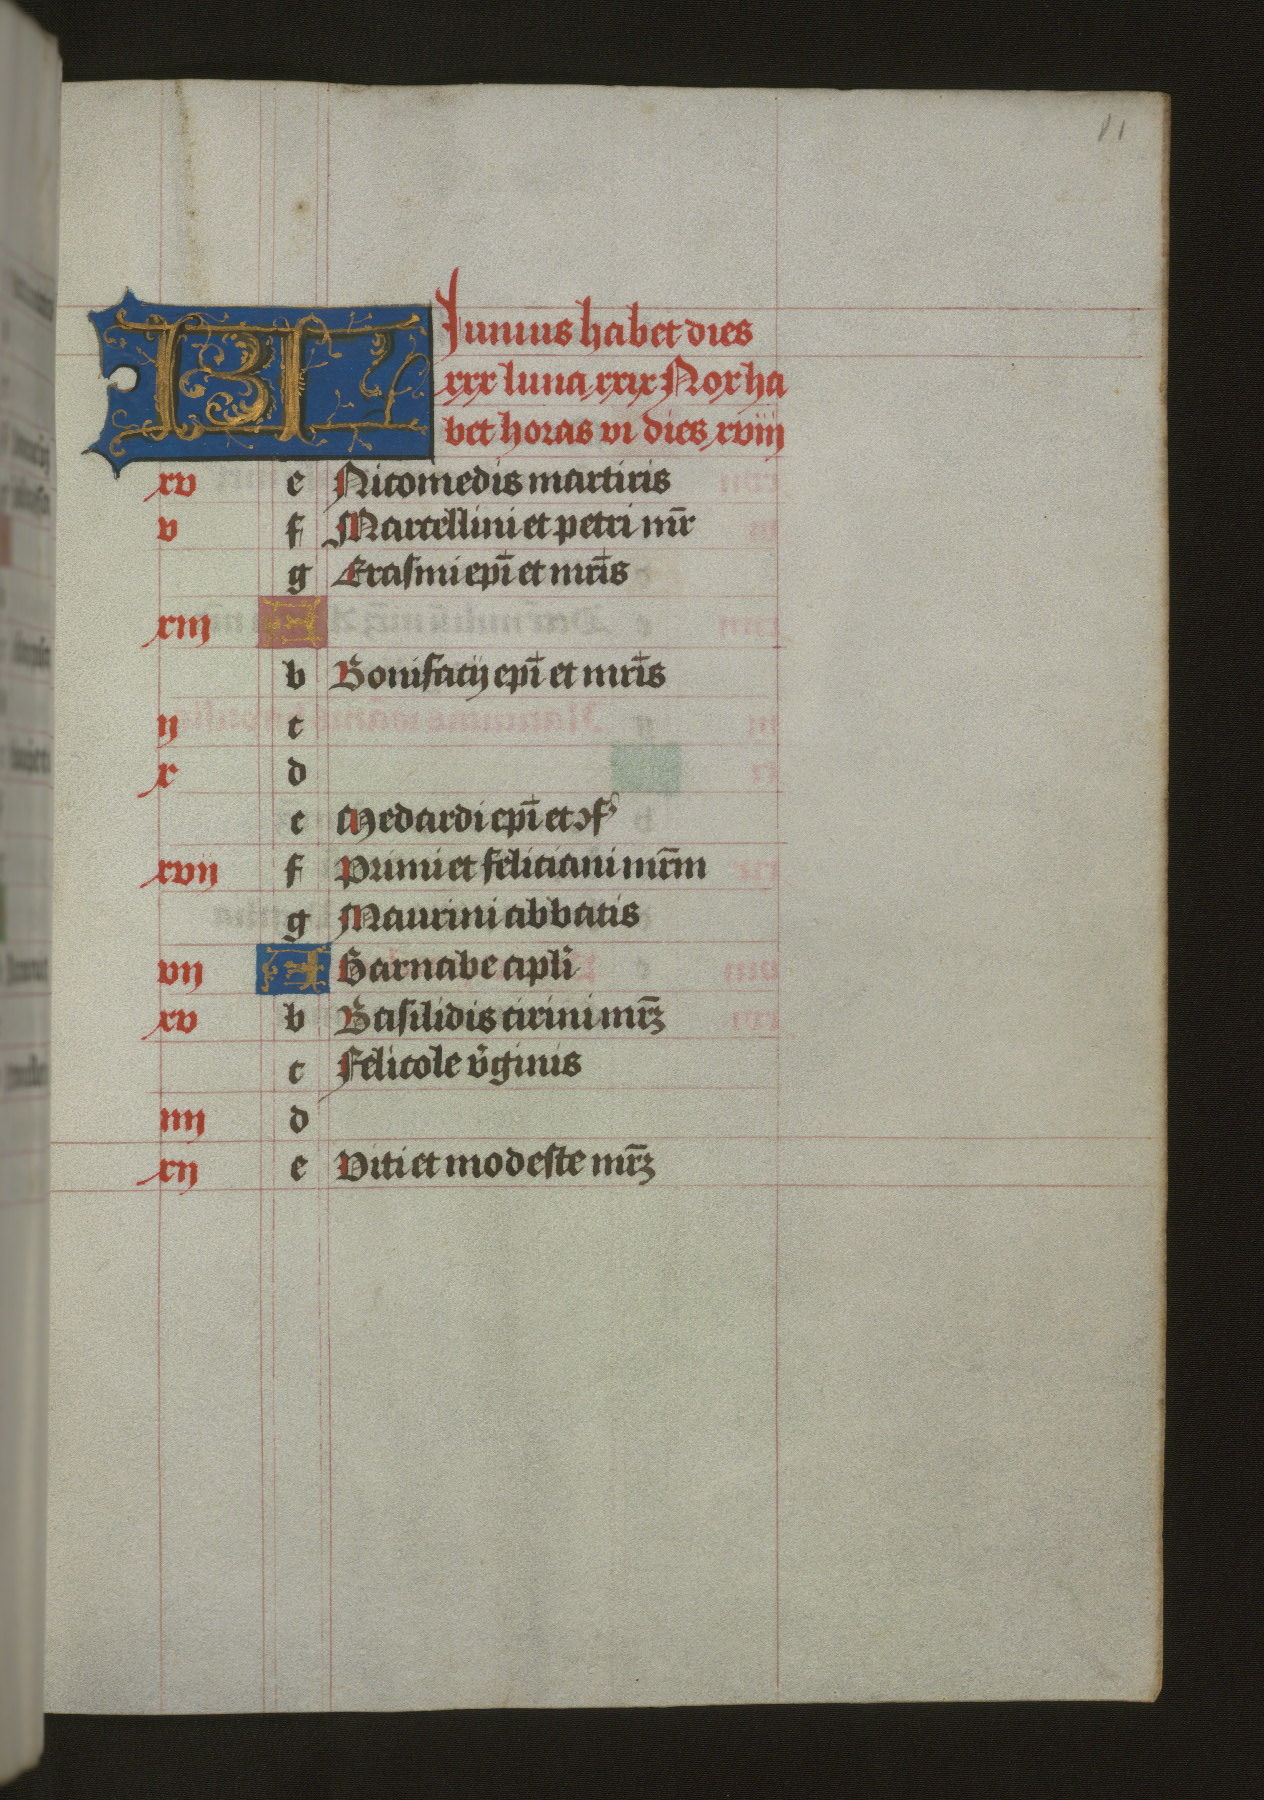 KL Junius habet dies
xxx luna xxix Nox ha
bet horas vi dies xviij
xv e Nicomedis martiris
v f Marcellini et petri mr̄
g Erasmi epī et mrīs
xiij A
b Bonifacij epī et mrīs
ij c
x d
e Medardi epī et ɔfꝰ
xvij f Primi et feliciani mrm̄
g Maurini abbatis
vij A Barnabe apl̄i
xv b Basilidis cirini mr̄ꝫ
c Felicole v̄ginis
iiij d
xij e Viti et modeste mr̄ꝫ